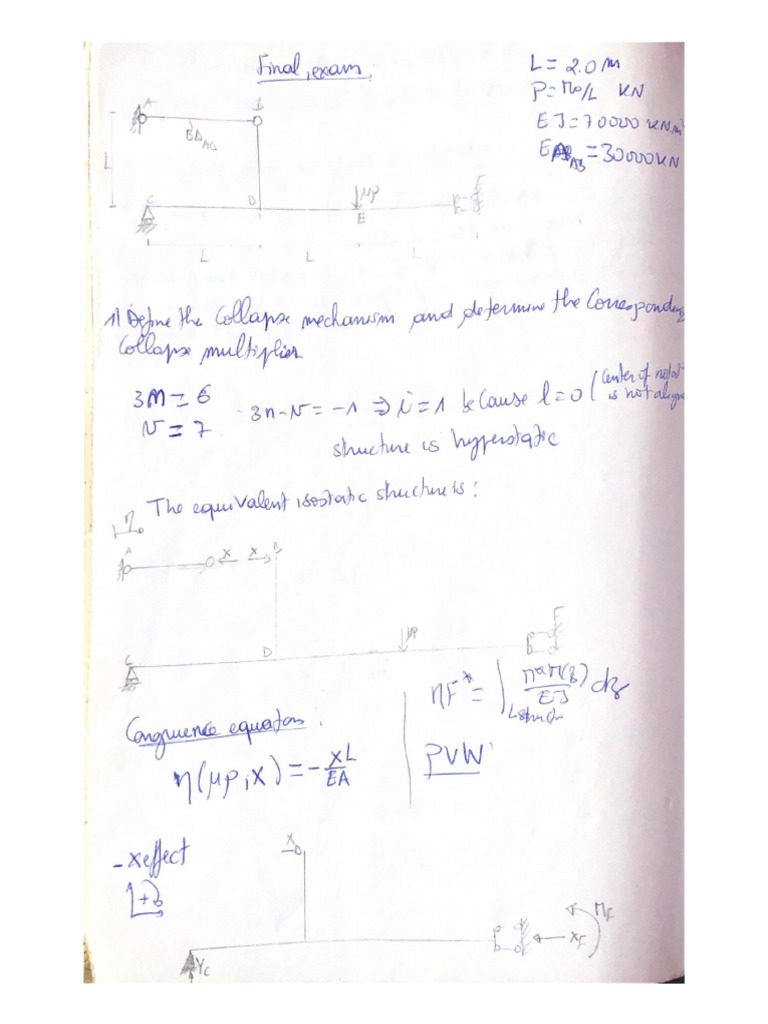 Final exam:
L = 2.0 m
P = M₀/L KN
EJ = 70000 KN m²
EA_AB = 30000 KN
A
B
EA_AB
L
C
D
μP
E
F
L L L
1) Define the Collapse mechanism and determine the Correspondeng
Collapse multiplier
3M = 6
N = 7
3n-N = -1 ⇒ i = 1 because l = 0 (center of
is not
structure is hyperstatic
The equivalent isostatic structure is:
η
A
X X B
C
D
μP
F
Congruence equation:
η(μP,X) = - XL/EA
ηF* = ∫ M*M(z)/EJ dz
PVW
- X effect
+
X
Y_C
X_F
M_F